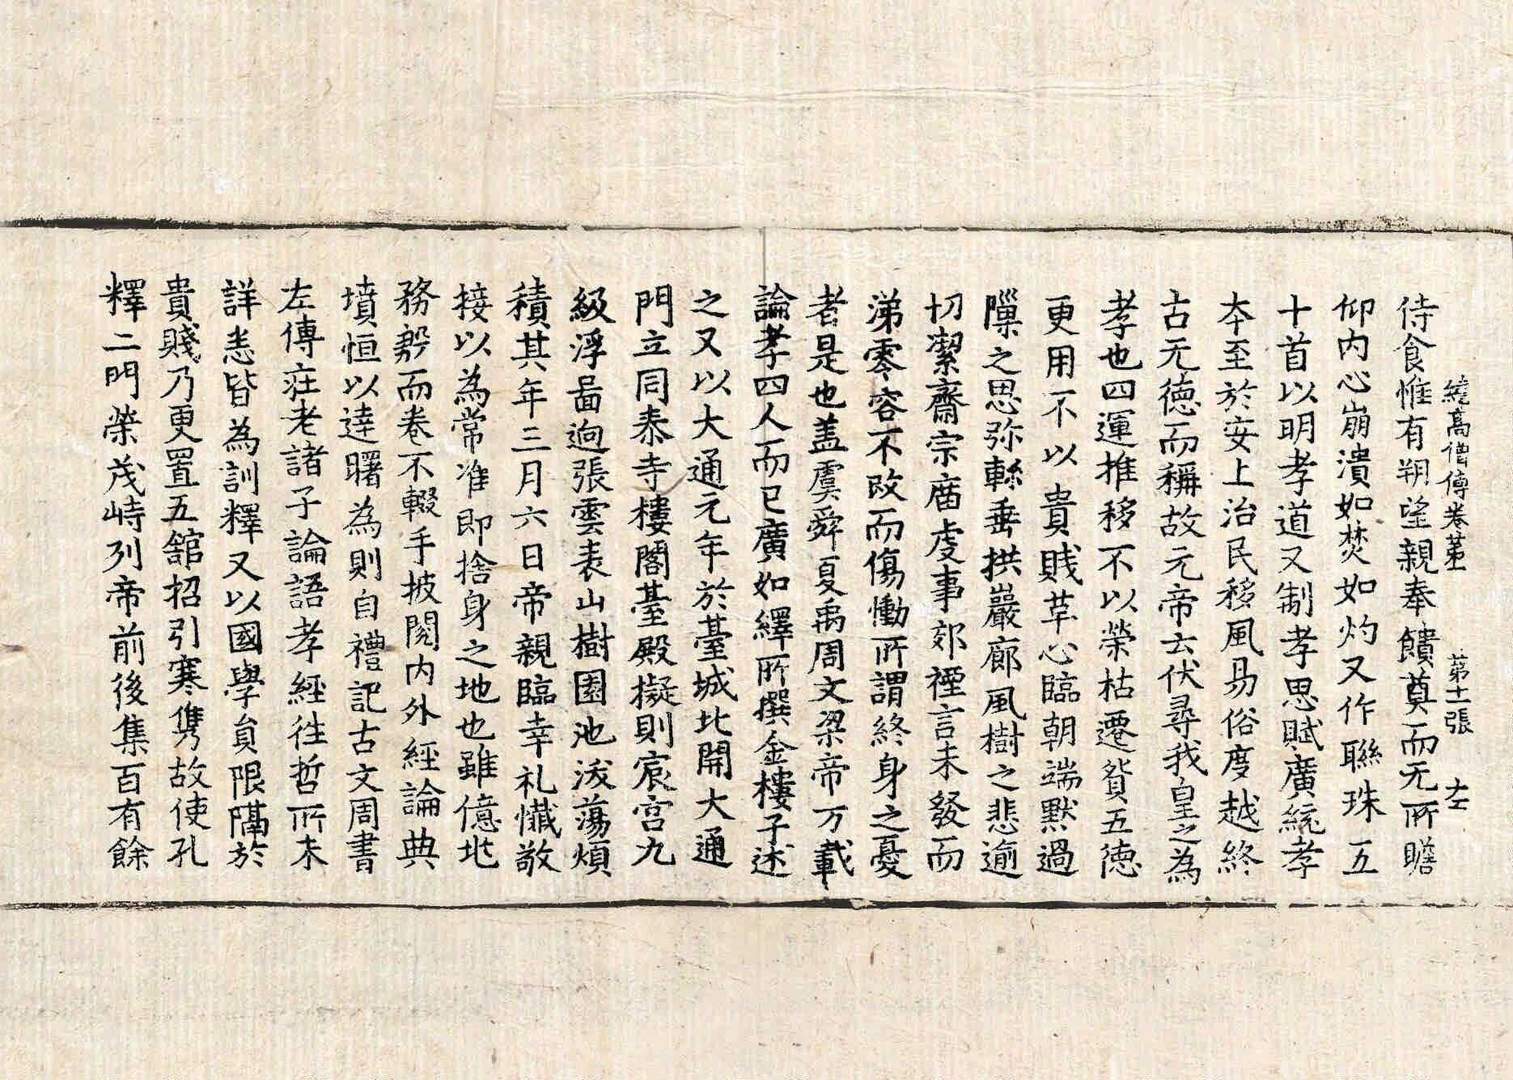 續高僧傳卷第一 第十一張 左
侍食惟有朔望親奉饋奠而无所瞻
仰内心崩潰如焚如灼又作聯珠五
十首以明孝道又制孝思賦廣統孝
本至於安上治民移風易俗度越終
古无德而稱故元帝云伏尋我皇之為
孝也四運推移不以榮枯遷貿五德
更用不以貴賤革心臨朝端默過
隟之思弥軫垂拱巖廊風樹之悲逾
切潔齋宗廟虔事郊禋言未發而
涕零容不改而傷慟所謂終身之憂
者是也盖虞舜夏禹周文梁帝万載
論孝四人而已廣如繹所撰金樓子述
之又以大通元年於臺城北開大通
門立同泰寺樓閣臺殿擬則宸宮九
級浮啚迥張雲表山樹園池沃蕩煩
積其年三月六日帝親臨幸礼懴敬
接以為常准即捨身之地也雖億兆
務殷而卷不輟手披閱内外經論典
墳恒以達曙為則自禮記古文周書
左傳莊老諸子論語孝經往哲所未
詳悉皆為訓釋又以國學員限隔於
貴賤乃更置五舘招引寒儁故使孔
釋二門榮茂峙列帝前後集百有餘